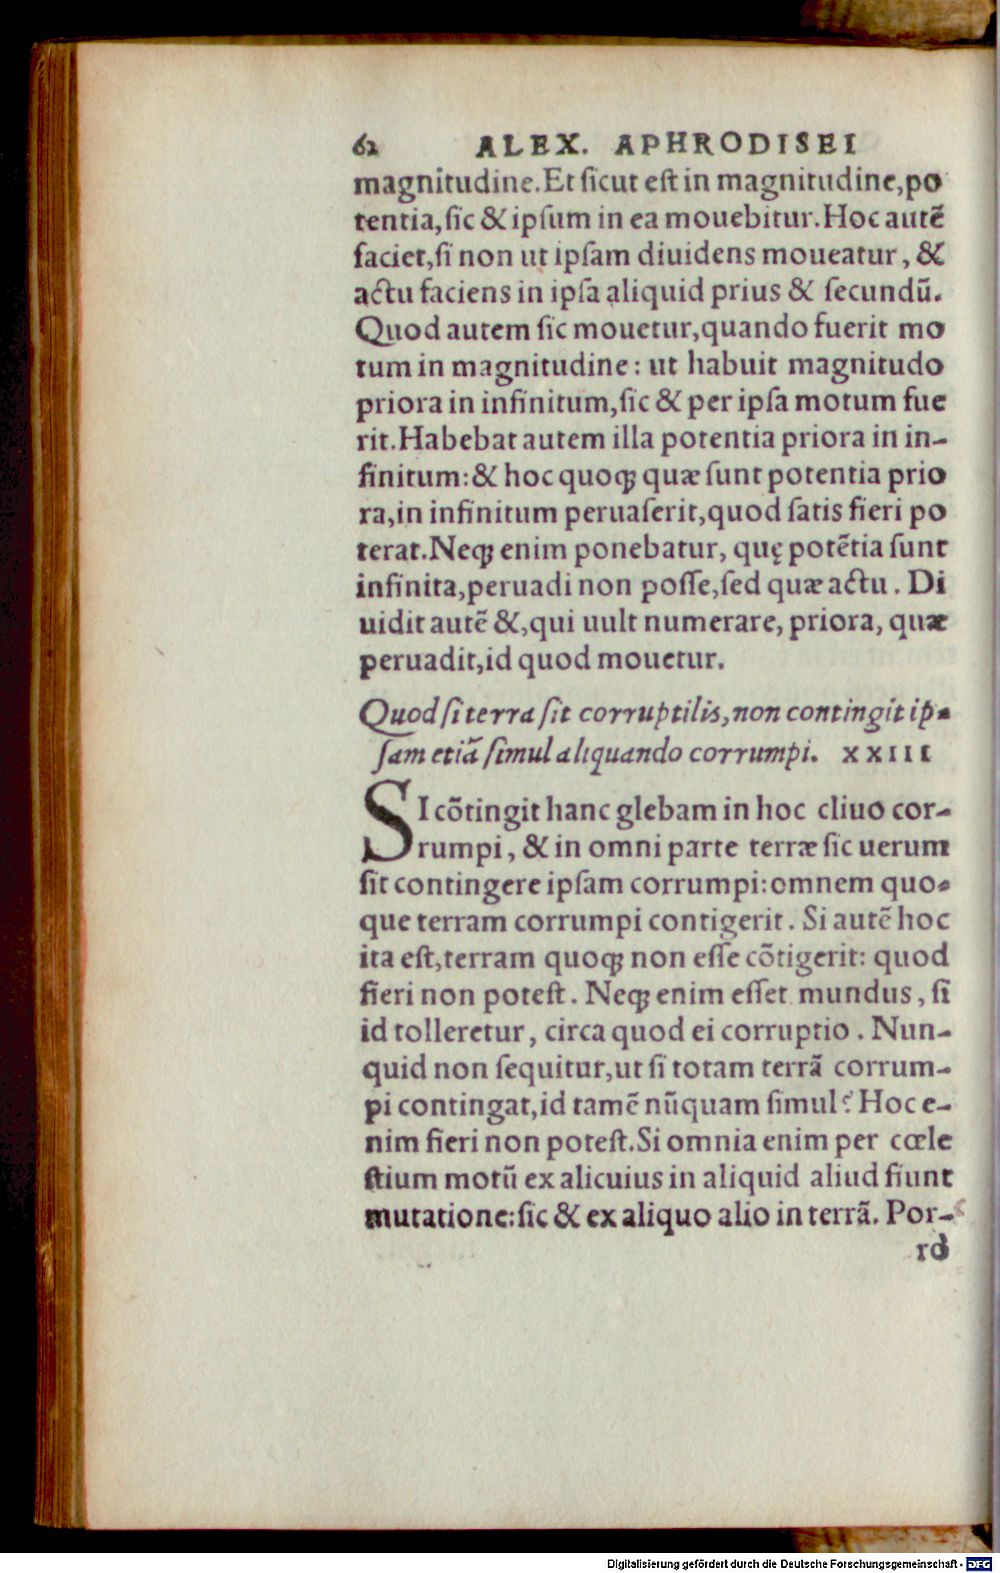 62 ALEX. APHRODISEI
magnitudine.Et ſicut eſt in magnitudine,po
tentia,ſic & ipſum in ea mouebitur.Hoc autē
faciet,ſi non ut ipſam diuidens moueatur, &
actu faciens in ipſa aliquid prius & ſecundū.
Quod autem ſic mouetur,quando fuerit mo
tum in magnitudine: ut habuit magnitudo
priora in infinitum,ſic & per ipſa motum fue
rit.Habebat autem illa potentia priora in in-
finitum:& hoc quoqꝫ quæ ſunt potentia prio
ra,in infinitum peruaſerit,quod ſatis fieri po
terat.Neqꝫ enim ponebatur, quę potētia ſunt
infinita,peruadi non poſſe,ſed quæ actu. Di
uidit autē &,qui uult numerare, priora, quæ
peruadit,id quod mouetur.
Quod ſi terra ſit corruptilis,non contingit ip-
ſam etiā ſimul aliquando corrumpi. XXIII
SI cōtingit hanc glebam in hoc cliuo cor-
rumpi, & in omni parte terræ ſic uerum
ſit contingere ipſam corrumpi:omnem quo-
que terram corrumpi contigerit. Si autē hoc
ita eſt,terram quoqꝫ non eſſe cōtigerit: quod
fieri non poteſt. Neqꝫ enim eſſet mundus, ſi
id tolleretur, circa quod ei corruptio. Nun-
quid non ſequitur,ut ſi totam terrā corrum-
pi contingat,id tamē nūquam ſimul? Hoc e-
nim fieri non poteſt.Si omnia enim per cœle
ſtium motū ex alicuius in aliquid aliud fiunt
mutatione:ſic & ex aliquo alio in terrā. Por-
rò
Digitalisierung gefördert durch die Deutsche Forschungsgemeinschaft - DFG